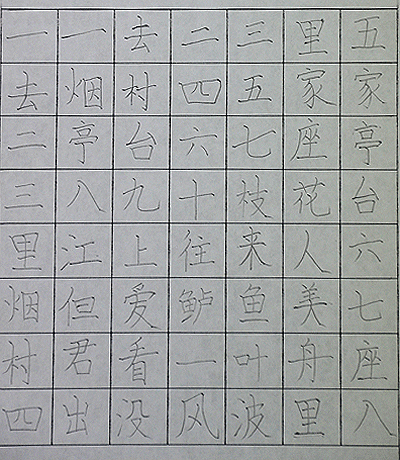 一一去二三里五
去烟村四五家家
二亭台六七座亭
三八九十枝花台
里江上往来人六
烟但爱鲈鱼美七
村君看一叶舟座
四出没风波里八